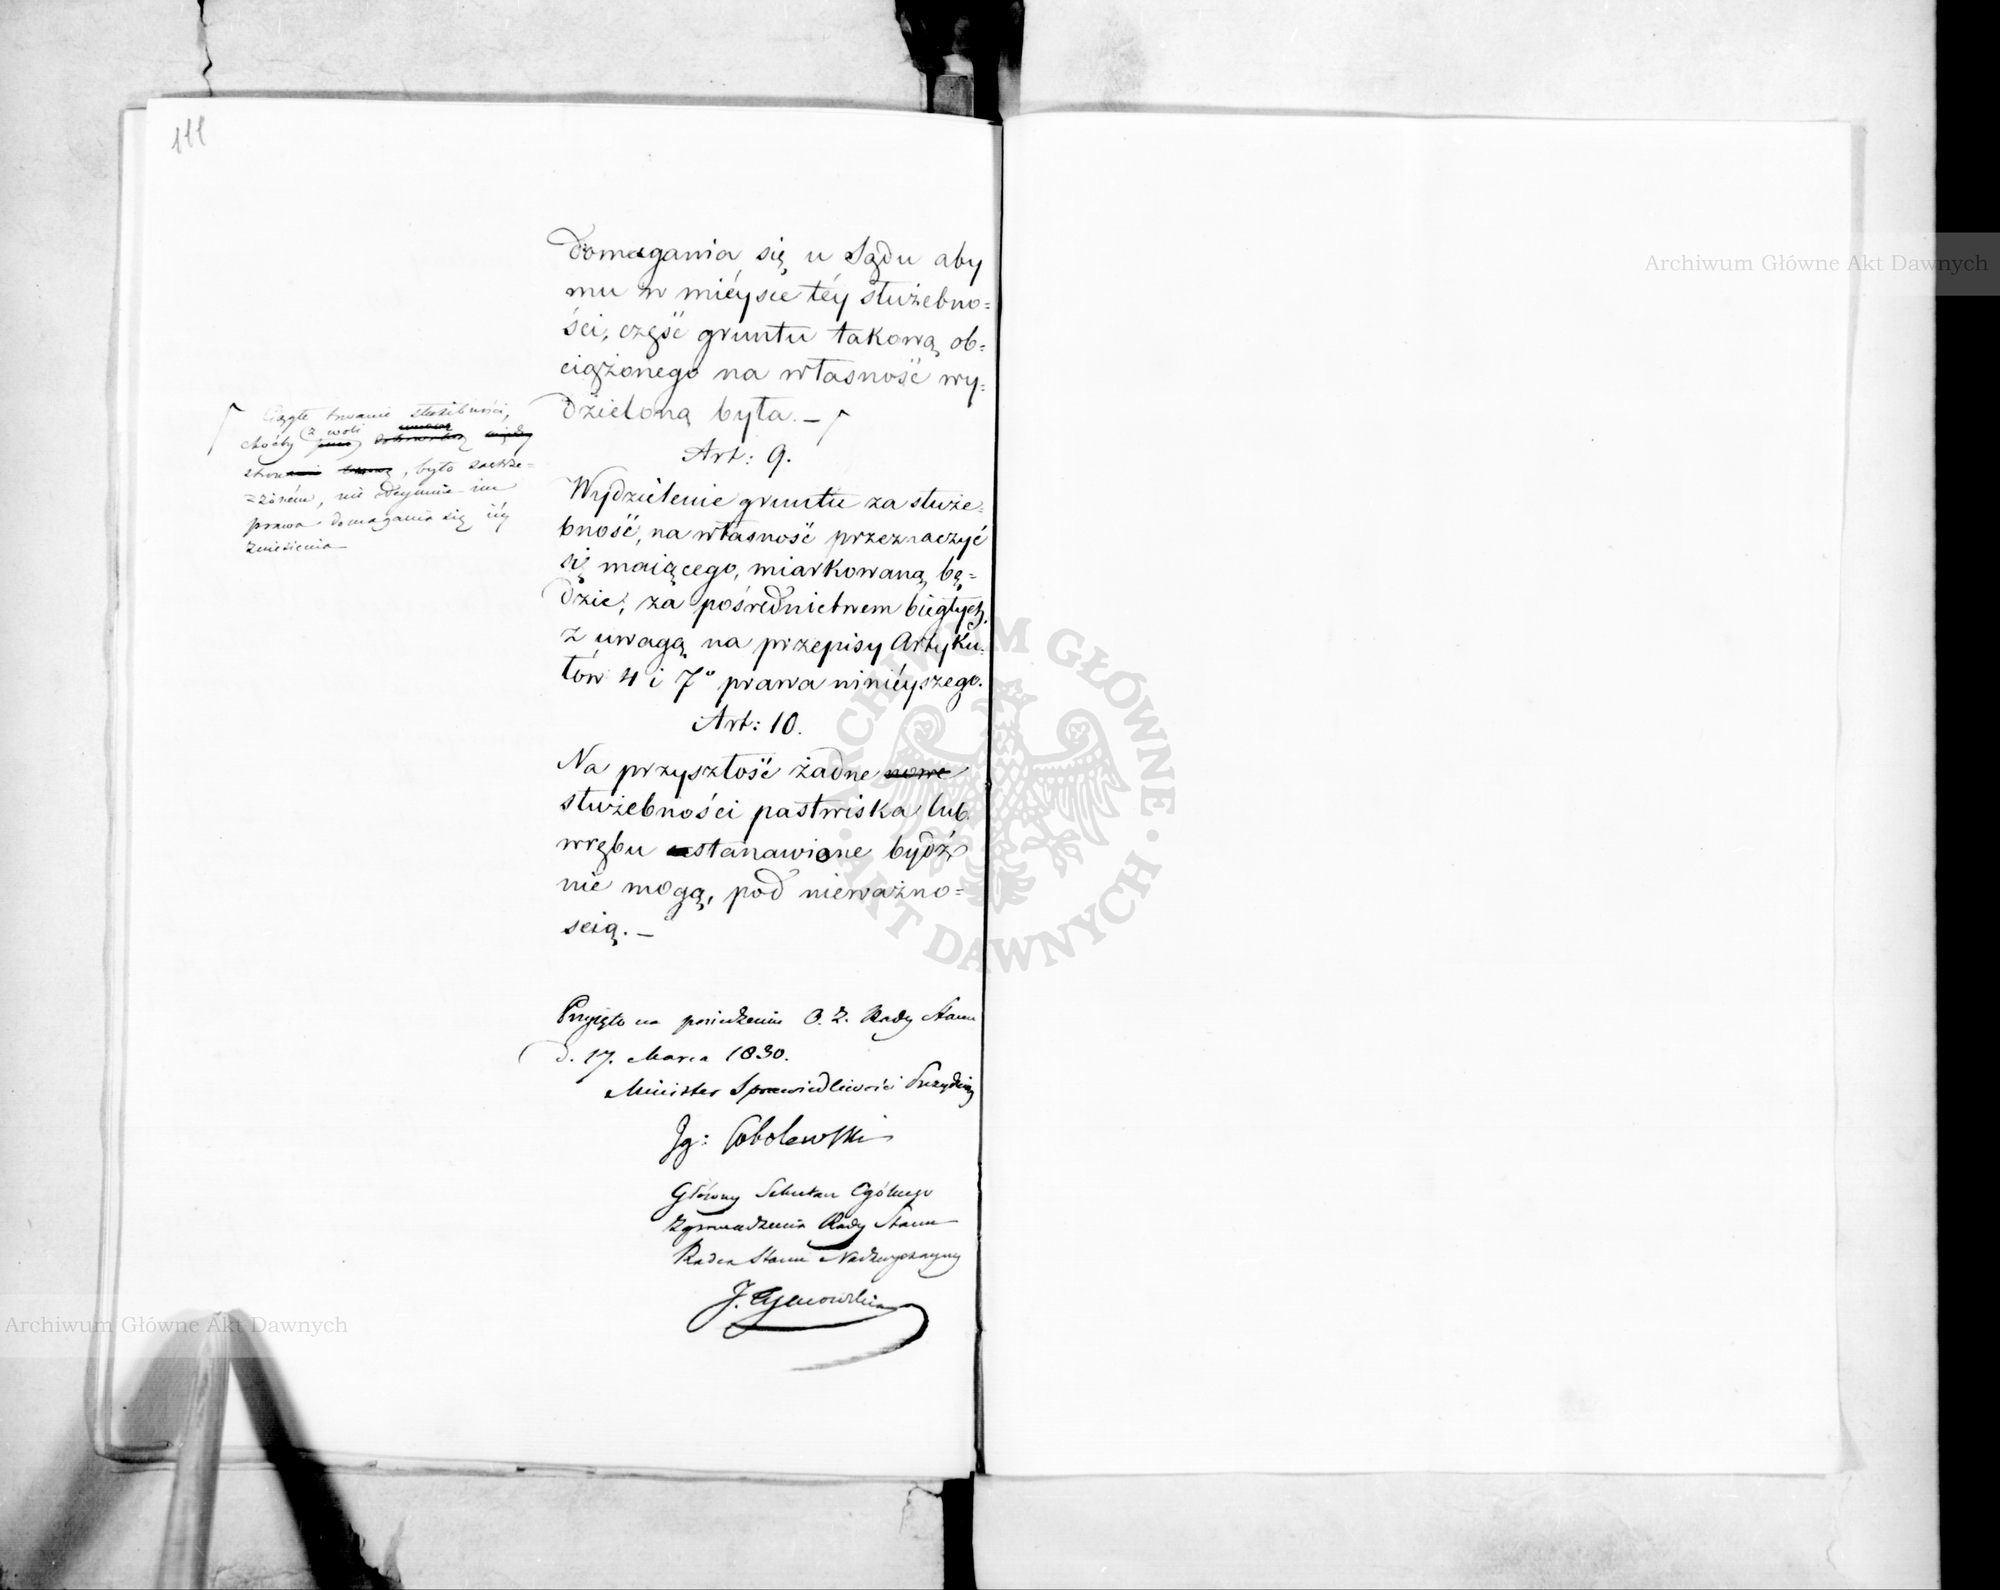 111
domagania się u Sądu aby
mu w mieýsce téy służebno=
ści, część gruntu takową ob=
ciążonego na własność wy=
dzieloną była. —
Ciągłe trwanie służebności,
choćby z woli
stron, było zastrze=
=żoném, nie odeymuie im
prawa domagania się iéy
zniesienia
Art: 9.
Wydzielenie gruntu za służe=
bność, na własność przeznaczyć
się maiącego, miarkowaną bę=
dzie, za pośrednictwem biegłych,
z uwagą na przepisy Artyku=
łów 4 i 7º prawa ninieýszego.
Art: 10.
Na przyszłość żadne nowe
służebności pastwiska lub
wrębu stanawione bydź
nie mogą, pod nieważno=
scią. —
Przyięto na posiedzeniu O. Z. Rady Stanu
d. 17. Marca 1830.
Minister Sprawiedliwości Prezyduiący
Ig: Sobolewski
Główny Sekretarz Ogólnego
Zgromadzenia Rady Stanu
Radca Stanu Nadzwyczayny
J. Tymowski
Archiwum Główne Akt Dawnych
Archiwum Główne Akt Dawnych
ARCHIWUM GŁÓWNE · AKT DAWNYCH ·